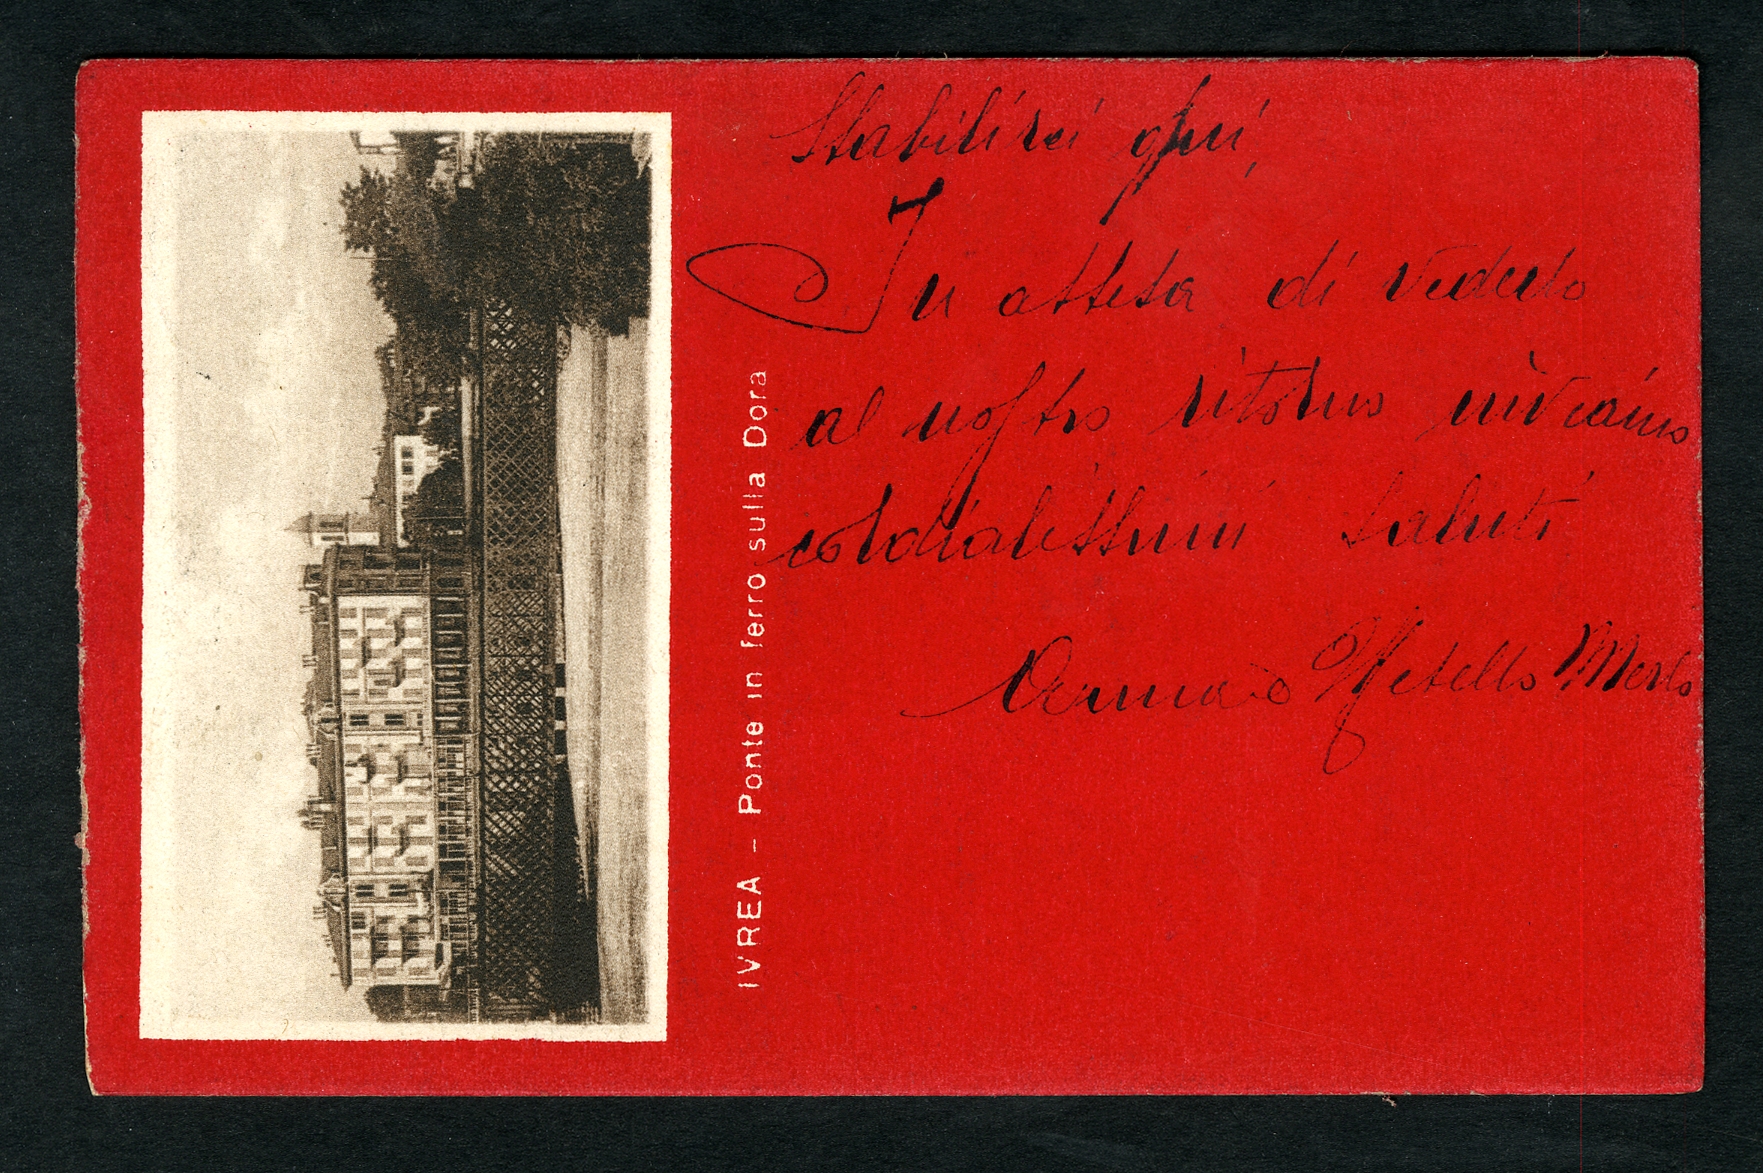 Stabilirci qui,
In attesa di vederlo
al nostro ritorno inviamo
cordialissimi saluti
Metello Merlo
IVREA – Ponte in ferro sulla Dora